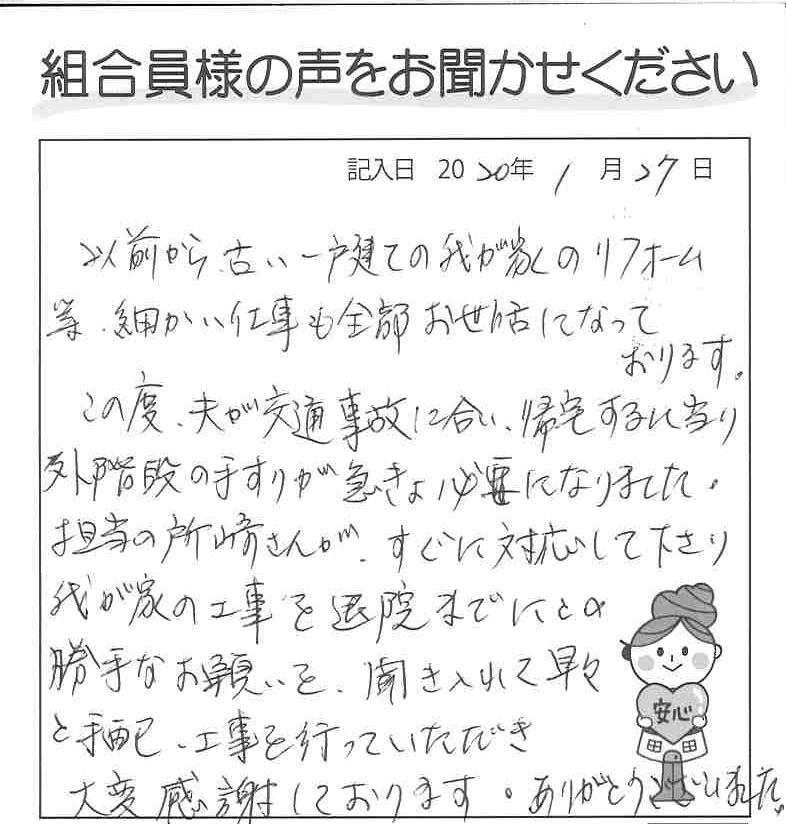 組合員様の声をお聞かせください
記入日 2020年 1月27日
以前から、古い一戸建ての我が家のリフォーム
等、細かい仕事も全部お世話になって
おります。
この度、夫が交通事故に合い、帰宅するに当り
外階段の手すりが急きょ必要になりました。
担当の所崎さんが、すぐに対応して下さり
我が家の工事を退院までにとの
勝手なお願いを、聞き入れて早々
と手配、工事を行っていただき
大変感謝しております。ありがとうございました。
安心